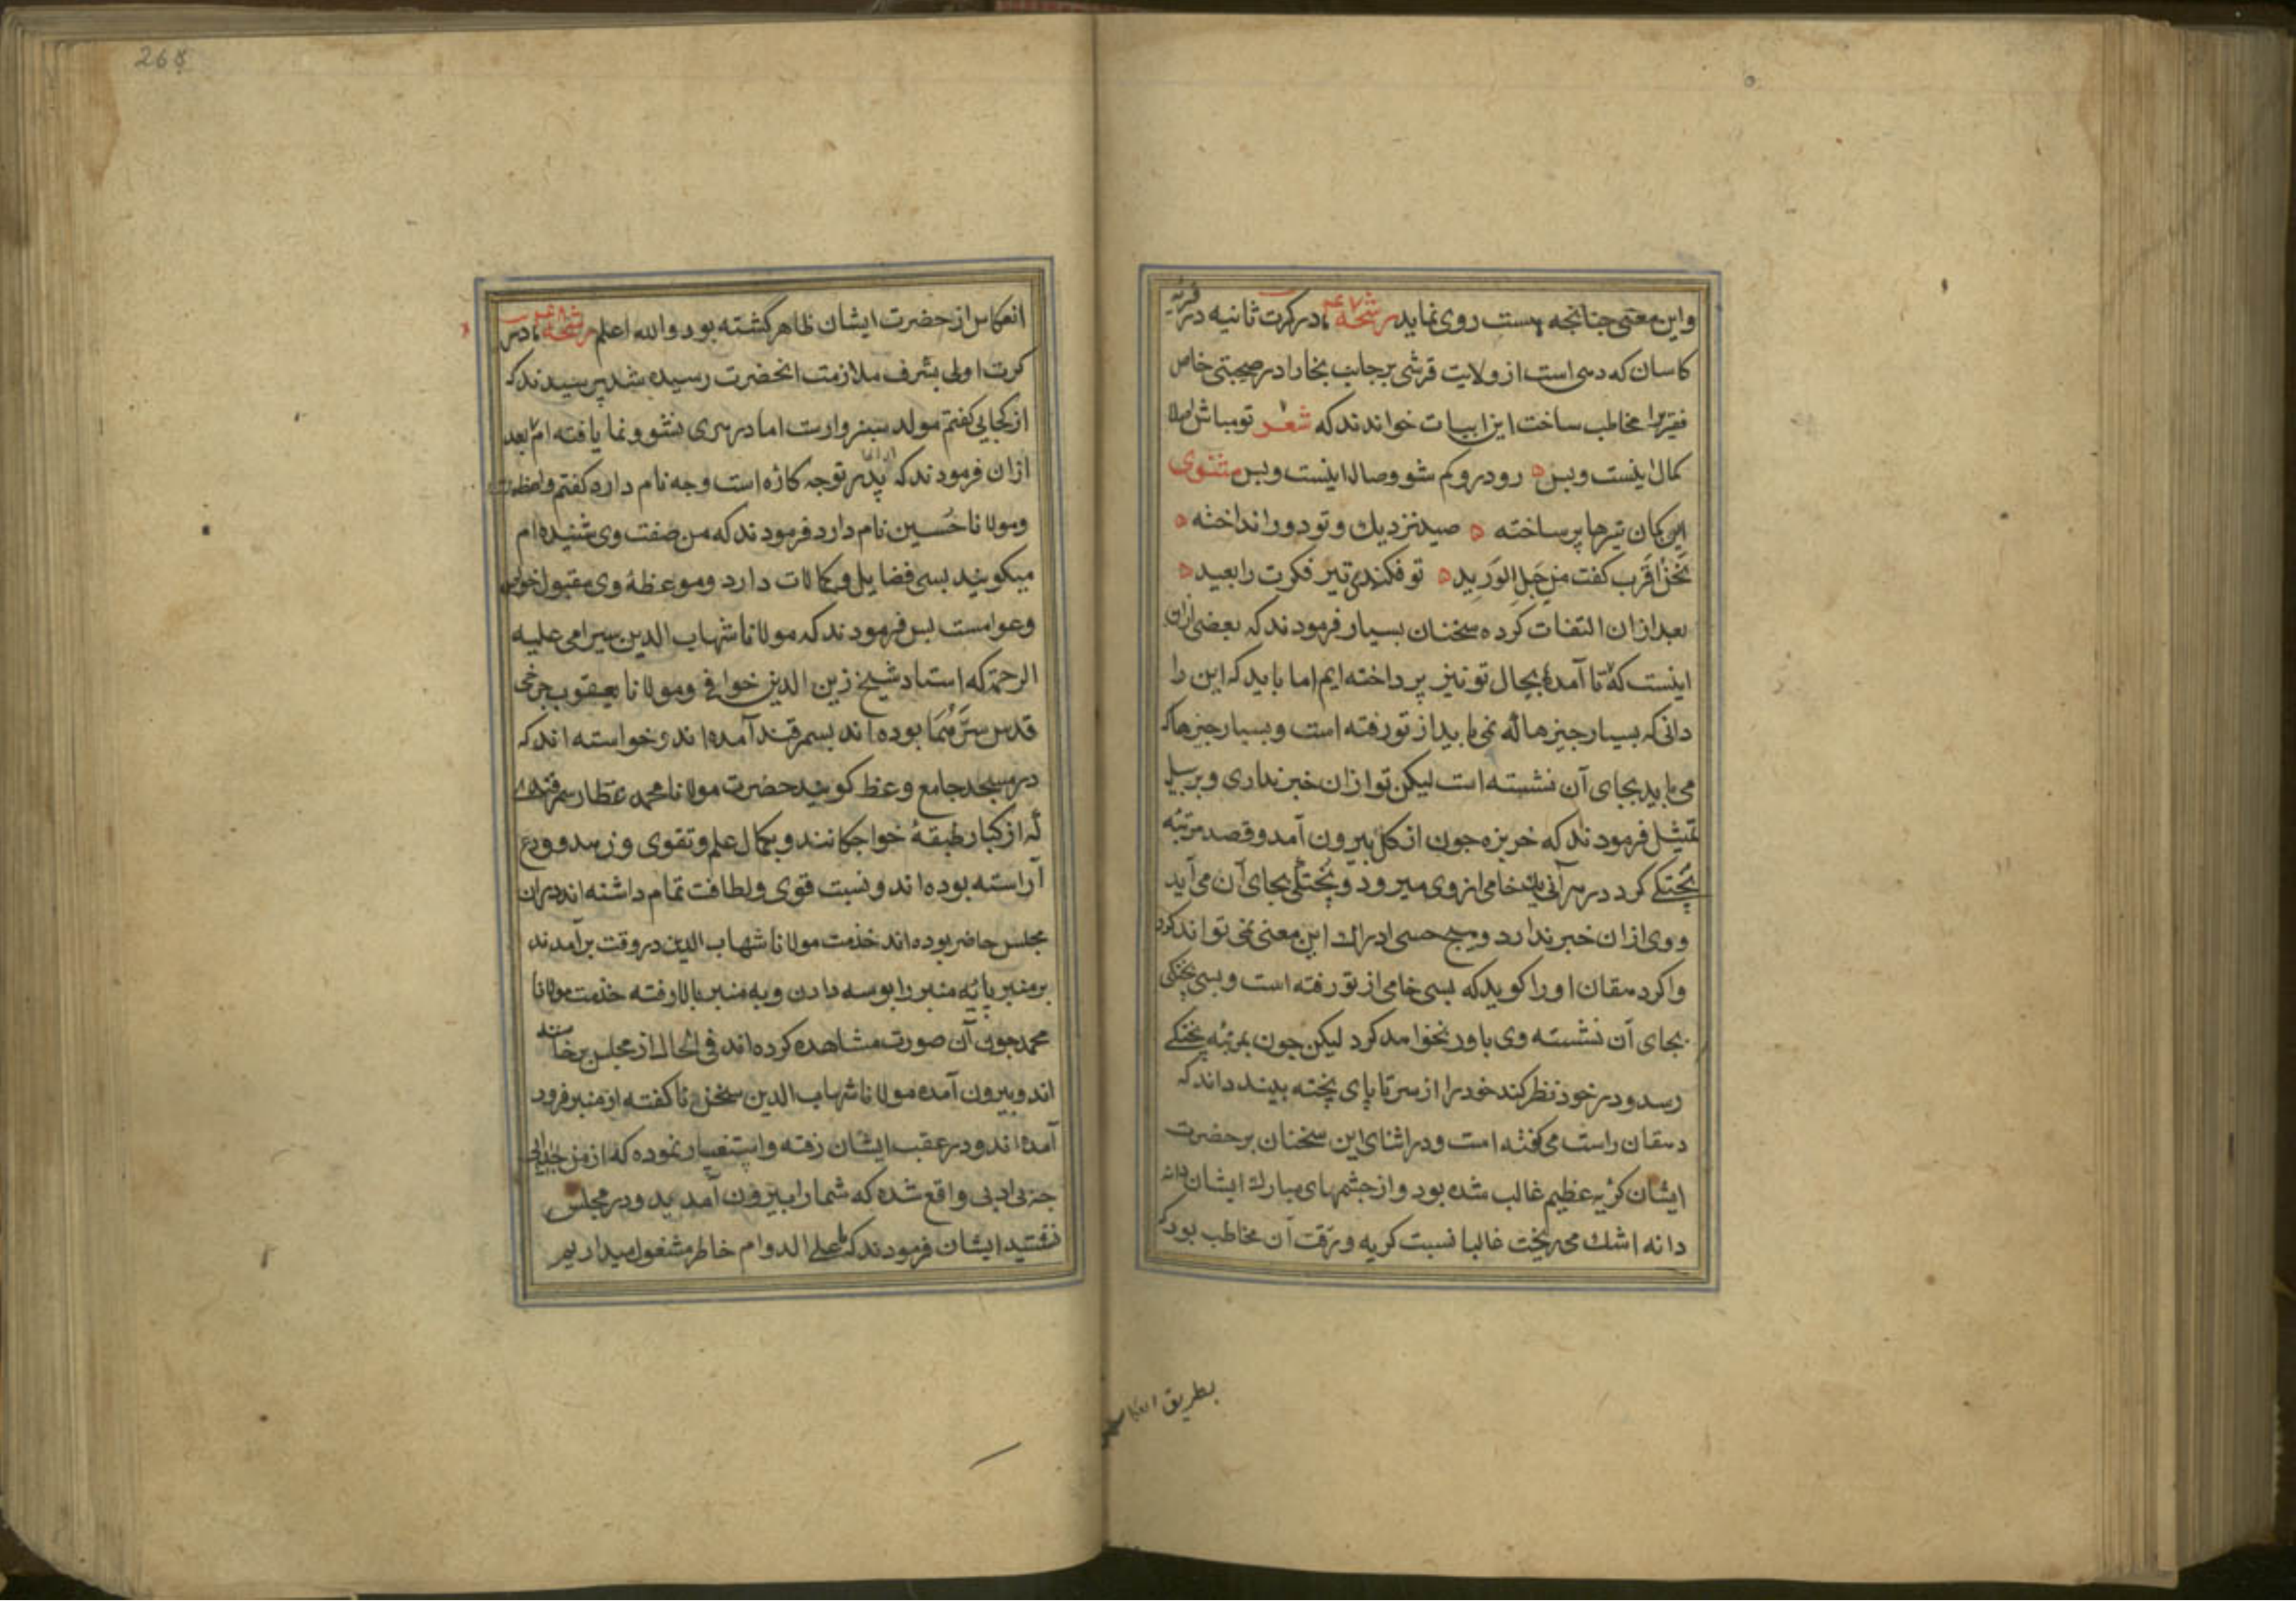 واین معنی جنانجه هست روی نماید رشحه ۴۷ در کرت ثانیه در قریه
کاسان که دهی است از ولایت قرشی بر جانب بخارا در صحبتی خاص
فقیر را مخاطب ساخت این ابیات خواندند که شعر تو مباش اصلا
کمال اینست و بس رو درو کم شو وصال اینست و بس مثنوی
ای کمان تیرها بر ساخته صید نزدیک و تو دور انداخته
نَحنُ اَقرَب کفت مِن حَبلِ الوَرید تو فکنده تیر فکرت را بعید
بعد ازان التفات کرده سخنان بسیار فرمودند که بعضی ازان
اینست که تا آمدهٔ بحال تو نیز پرداخته ایم اما باید که این را
دانی که بسیار جیزها که نمی باید از تو رفته است و بسیار جیزها که
می باید بجای آن نشسته است لیکن تو ازان خبر نداری و بر سبیل
تمثیل فرمودند که خربزه جون از کل بیرون آمد و قصد مرتبه
پختکی کرد در هر آنی یک خامی از وی میرود و پختکی بجای آن می آید
و وی ازان خبر ندارد و هیج حسی ادراک این معنی نمی تواند کرد
و اکر دهقان او را کوید که بسی خامی از تو رفته است و بسی پختکی
بجای آن نشسته وی باور نخواهد کرد لیکن جون بمرتبه پختکی
رسد و در خود نظر کند خود را از سر تا پای پخته بیند داند که
دهقان راست می کفته است و در اثنای این سخنان بر حضرت
ایشان کریه عظیم غالب شده بود و از جشمهای مبارک ایشان دانه
دانه اشک می ریخت غالبا نسبت کریه و رقت آن مخاطب بود که
بطریق انعکاس
268
انعکاس از حضرت ایشان ظاهر کشته بود والله اعلم رشحه ۴۸ در
کرت اولی بشرف ملازمت انحضرت رسیده شد پرسیدند که
از کجایی کفتم مولد سبزوارست اما در هری نشو و نما یافته ام بعد
ازان فرمودند که پدر تو جه کاره است و جه نام دارد کفتم واعظ است
و مولانا حسین نام دارد فرمودند که من صفت وی شنیده ام
میکویند بسی فضایل و کمالات دارد و موعظهٔ وی مقبول خواص
و عوامست پس فرمودند که مولانا شهاب الدین سیرامی علیه
الرحمة که استاد شیخ زین الدین خوافی و مولانا یعقوب جرخی
قدس سرهما بوده اند بسمرقند آمده اند و خواسته اند که
در مسجد جامع وعظ کویند حضرت مولانا محمد عطار سمرقندی
که از کبار طبقهٔ خواجکانند و بکمال علم و تقوی و زهد و ورع
آراسته بوده اند و نسبت قوی و لطافت تمام داشته اند دران
مجلس حاضر بوده اند خدمت مولانا شهاب الدین در وقت برآمدند
بر منبر پایه منبر را بوسه دادن و به منبر بالا رفته خدمت مولانا
محمد جون آن صورت مشاهده کرده اند فی الحال از مجلس برخاسته
اند و بیرون آمده مولانا شهاب الدین سخن نا کفته از منبر فرود
آمده اند و در عقب ایشان رفته و استفسار نموده که از من
جه بی ادبی واقع شده که شما را بیرون آمدید و در مجلس
ننشستید ایشان فرمودند که ما علی الدوام خاطر مشغول میداریم